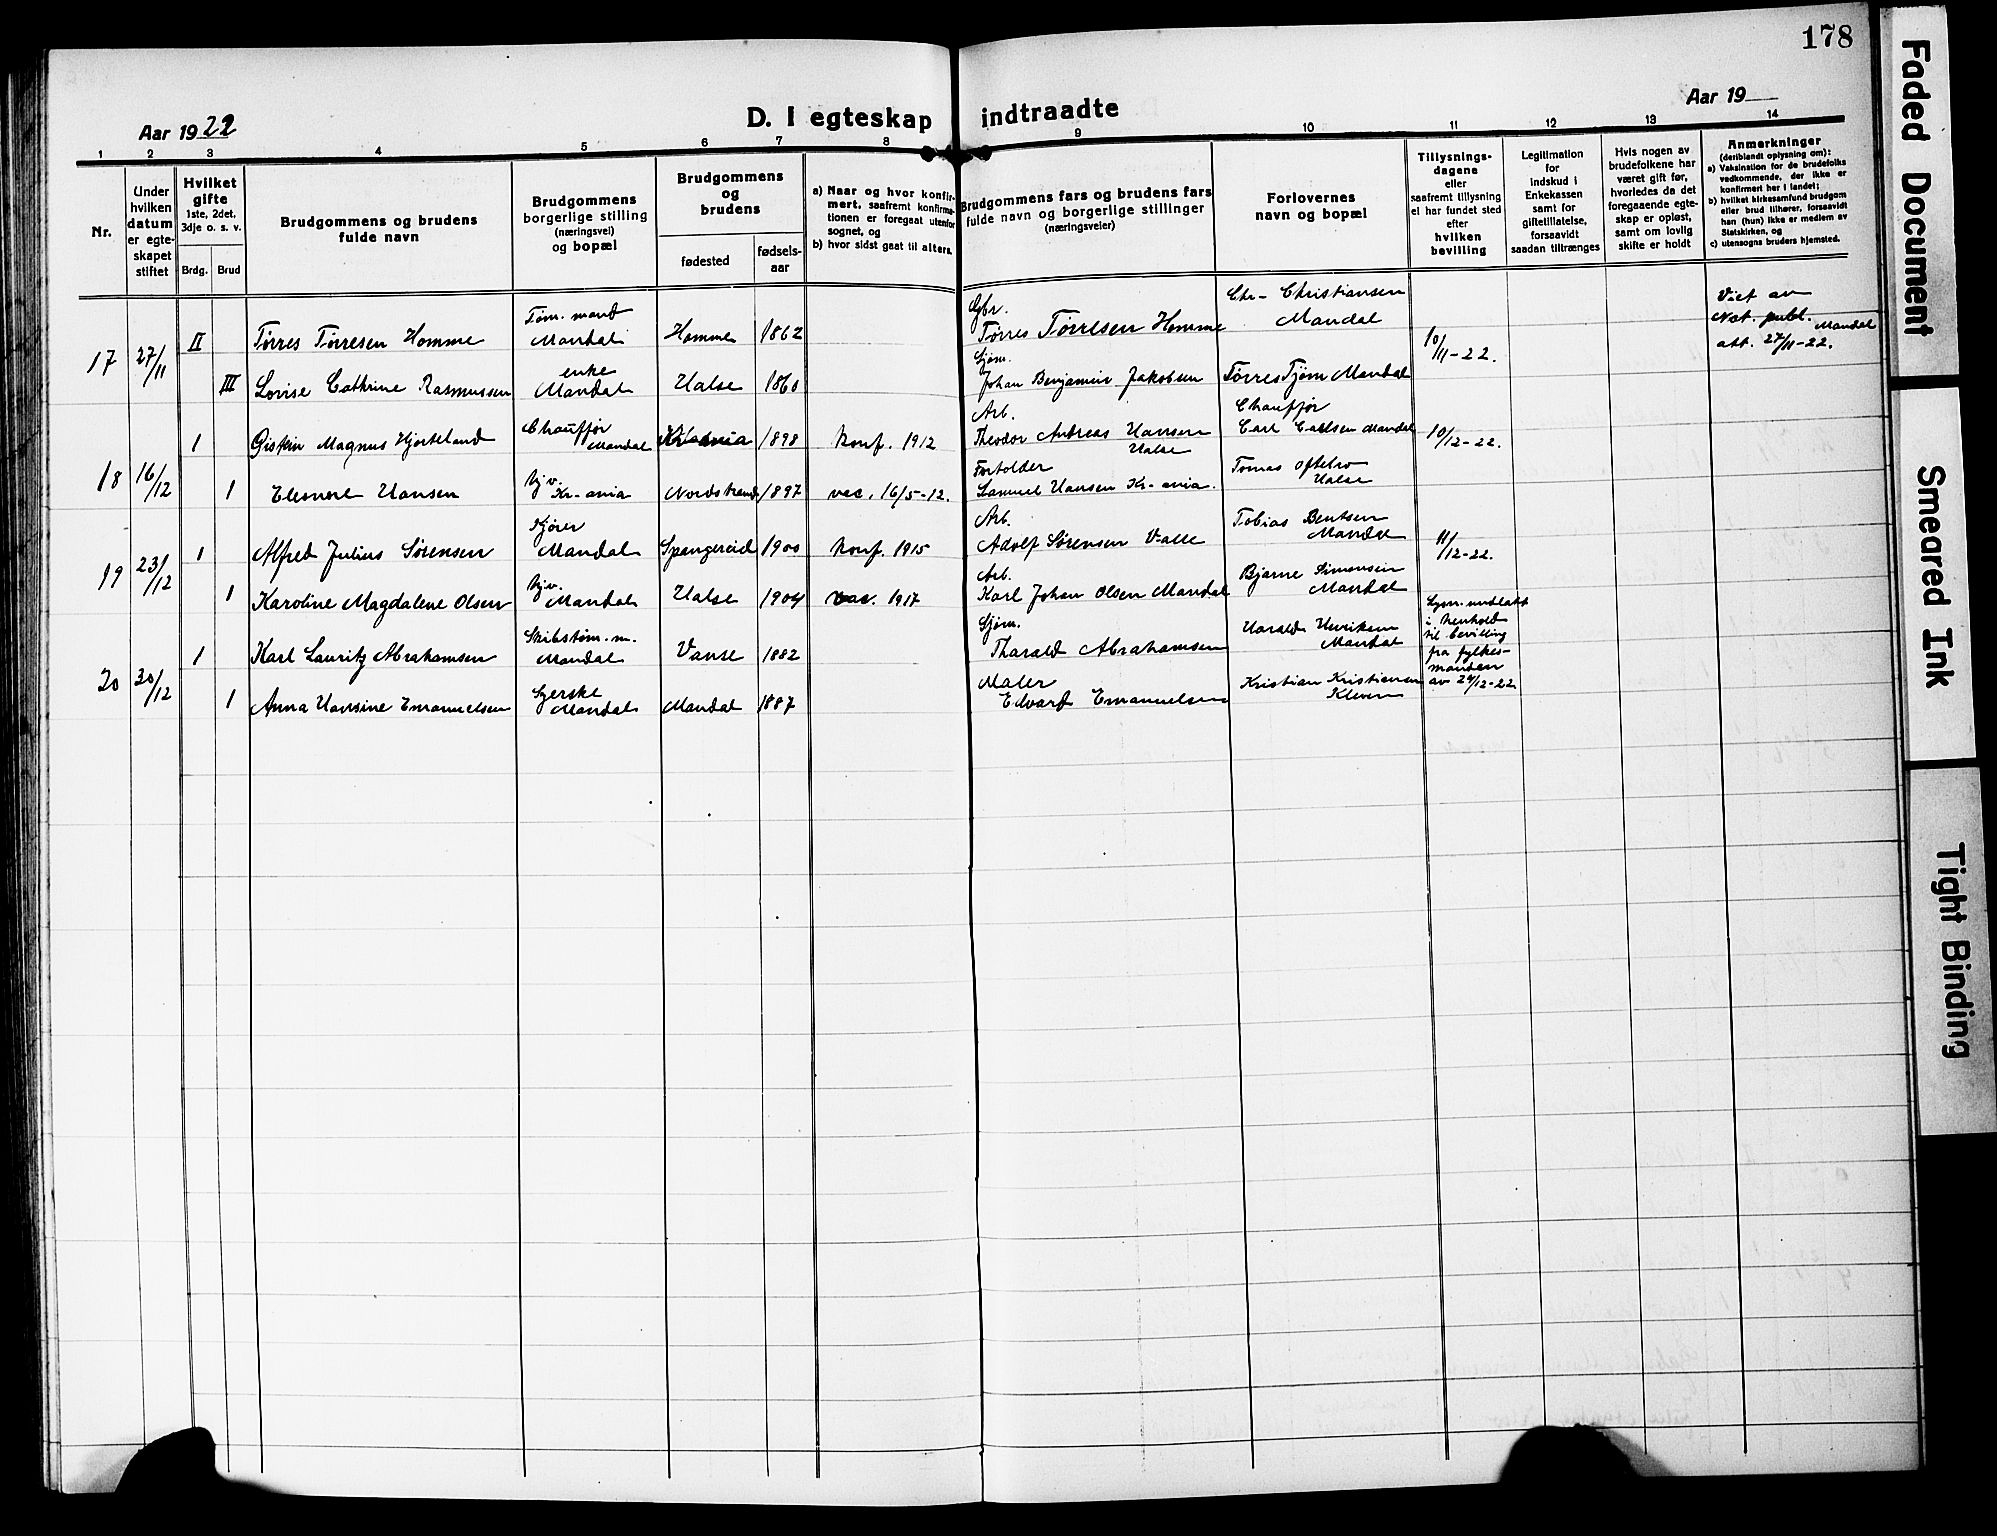 178
Faded Document
Smeared Ink
Tight Binding
Aar 1922
D. I egteskap indtraadte
Aar 19
1 2 3 4 5 6 7 8 9 10 11 12 13 14
Nr.
Under hvilken datum er egteskapet stiftet
Hvilket gifte
1ste, 2det, 3dje o. s. v.
Brdg. Brud
Brudgommens og brudens fulde navn
Brudgommens borgerlige stilling (næringsvei) og bopæl
Brudgommens og brudens
fødested
fødselsaar
a) Naar og hvor konfirmert, saafremt konfirmationen er foregaat utenfor sognet, og
b) hvor sidst gaat til alters.
Brudgommens fars og brudens fars fulde navn og borgerlige stillinger (næringsveier)
Forlovernes navn og bopæl
Tillysningsdagene eller saafremt tillysning ei har fundet sted efter hvilken bevilling
Legitimation for indskud i Enkekassen samt for giftetillatelse, forsaavidt saadan tiltrænges
Hvis nogen av brudefolkene har været gift før, hvorledes da det foregaaende egteskap er opløst, samt om lovlig skifte er holdt
Anmerkninger
(deriblandt oplysning om):
a) Vaksination for de brudefolks vedkommende, der ikke er konfirmert her i landet;
b) hvilket kirkesamfund brudgom eller brud tilhører, forsaavidt han (hun) ikke er medlem av Statskirken, og
c) utensogns bruders hjemsted.
17 27/11 II Tørres Tørresen Homme Tøm.mand Mandal Homme 1862 Gbr. Tørres Tørresen Homme Chr- Christiansen Mandal 10/11-22. Viet av Not. publ. Mandal att. 27/11-22.
III Lovise Cathrine Rasmussen enke Mandal Halse 1860 Sjøm. Johan Benjamin Jakobsen Tørres Tjøm Mandal
18 16/12 1 Magnus Hjorteland Chauffør Mandal 1898 Konf. 1912 Arb. Theodor Andreas Hansen Halse Chauffør Carl Carlsen Mandal 10/12-22.
1 Eleonore Hansen Hjv. Kr-ania Nordstrand 1897 vac. 16/5-12. Forholder Samuel Hansen Kr-ania. Tomas Oftebro Halse
19 23/12 1 Alfred Julius Sørensen Kjører Mandal Spangereid 1900 Konf. 1915 Arb. Adolf Sørensen Valle Tobias Bentsen Mandal 11/12-22.
1 Karoline Magdalene Olsen Hjv. Mandal Halse 1904 vac. 1917 Arb. Karl Johan Olsen Mandal Bjarne Simonsen Mandal
20 30/12 1 Karl Lauritz Abrahamsen Skibstøm.m. Mandal Vanse 1882 Sjøm. Tharald Abrahamsen Harald Henriksen Mandal Lysn. undlatt i henhold til bevilling fra fylkesmanden av 29/12-22
1 Anna Hansine Emanuelsen Syerske Mandal Mandal 1887 Maler Edvard Emanuelsen Kristian Kristiansen Kleven